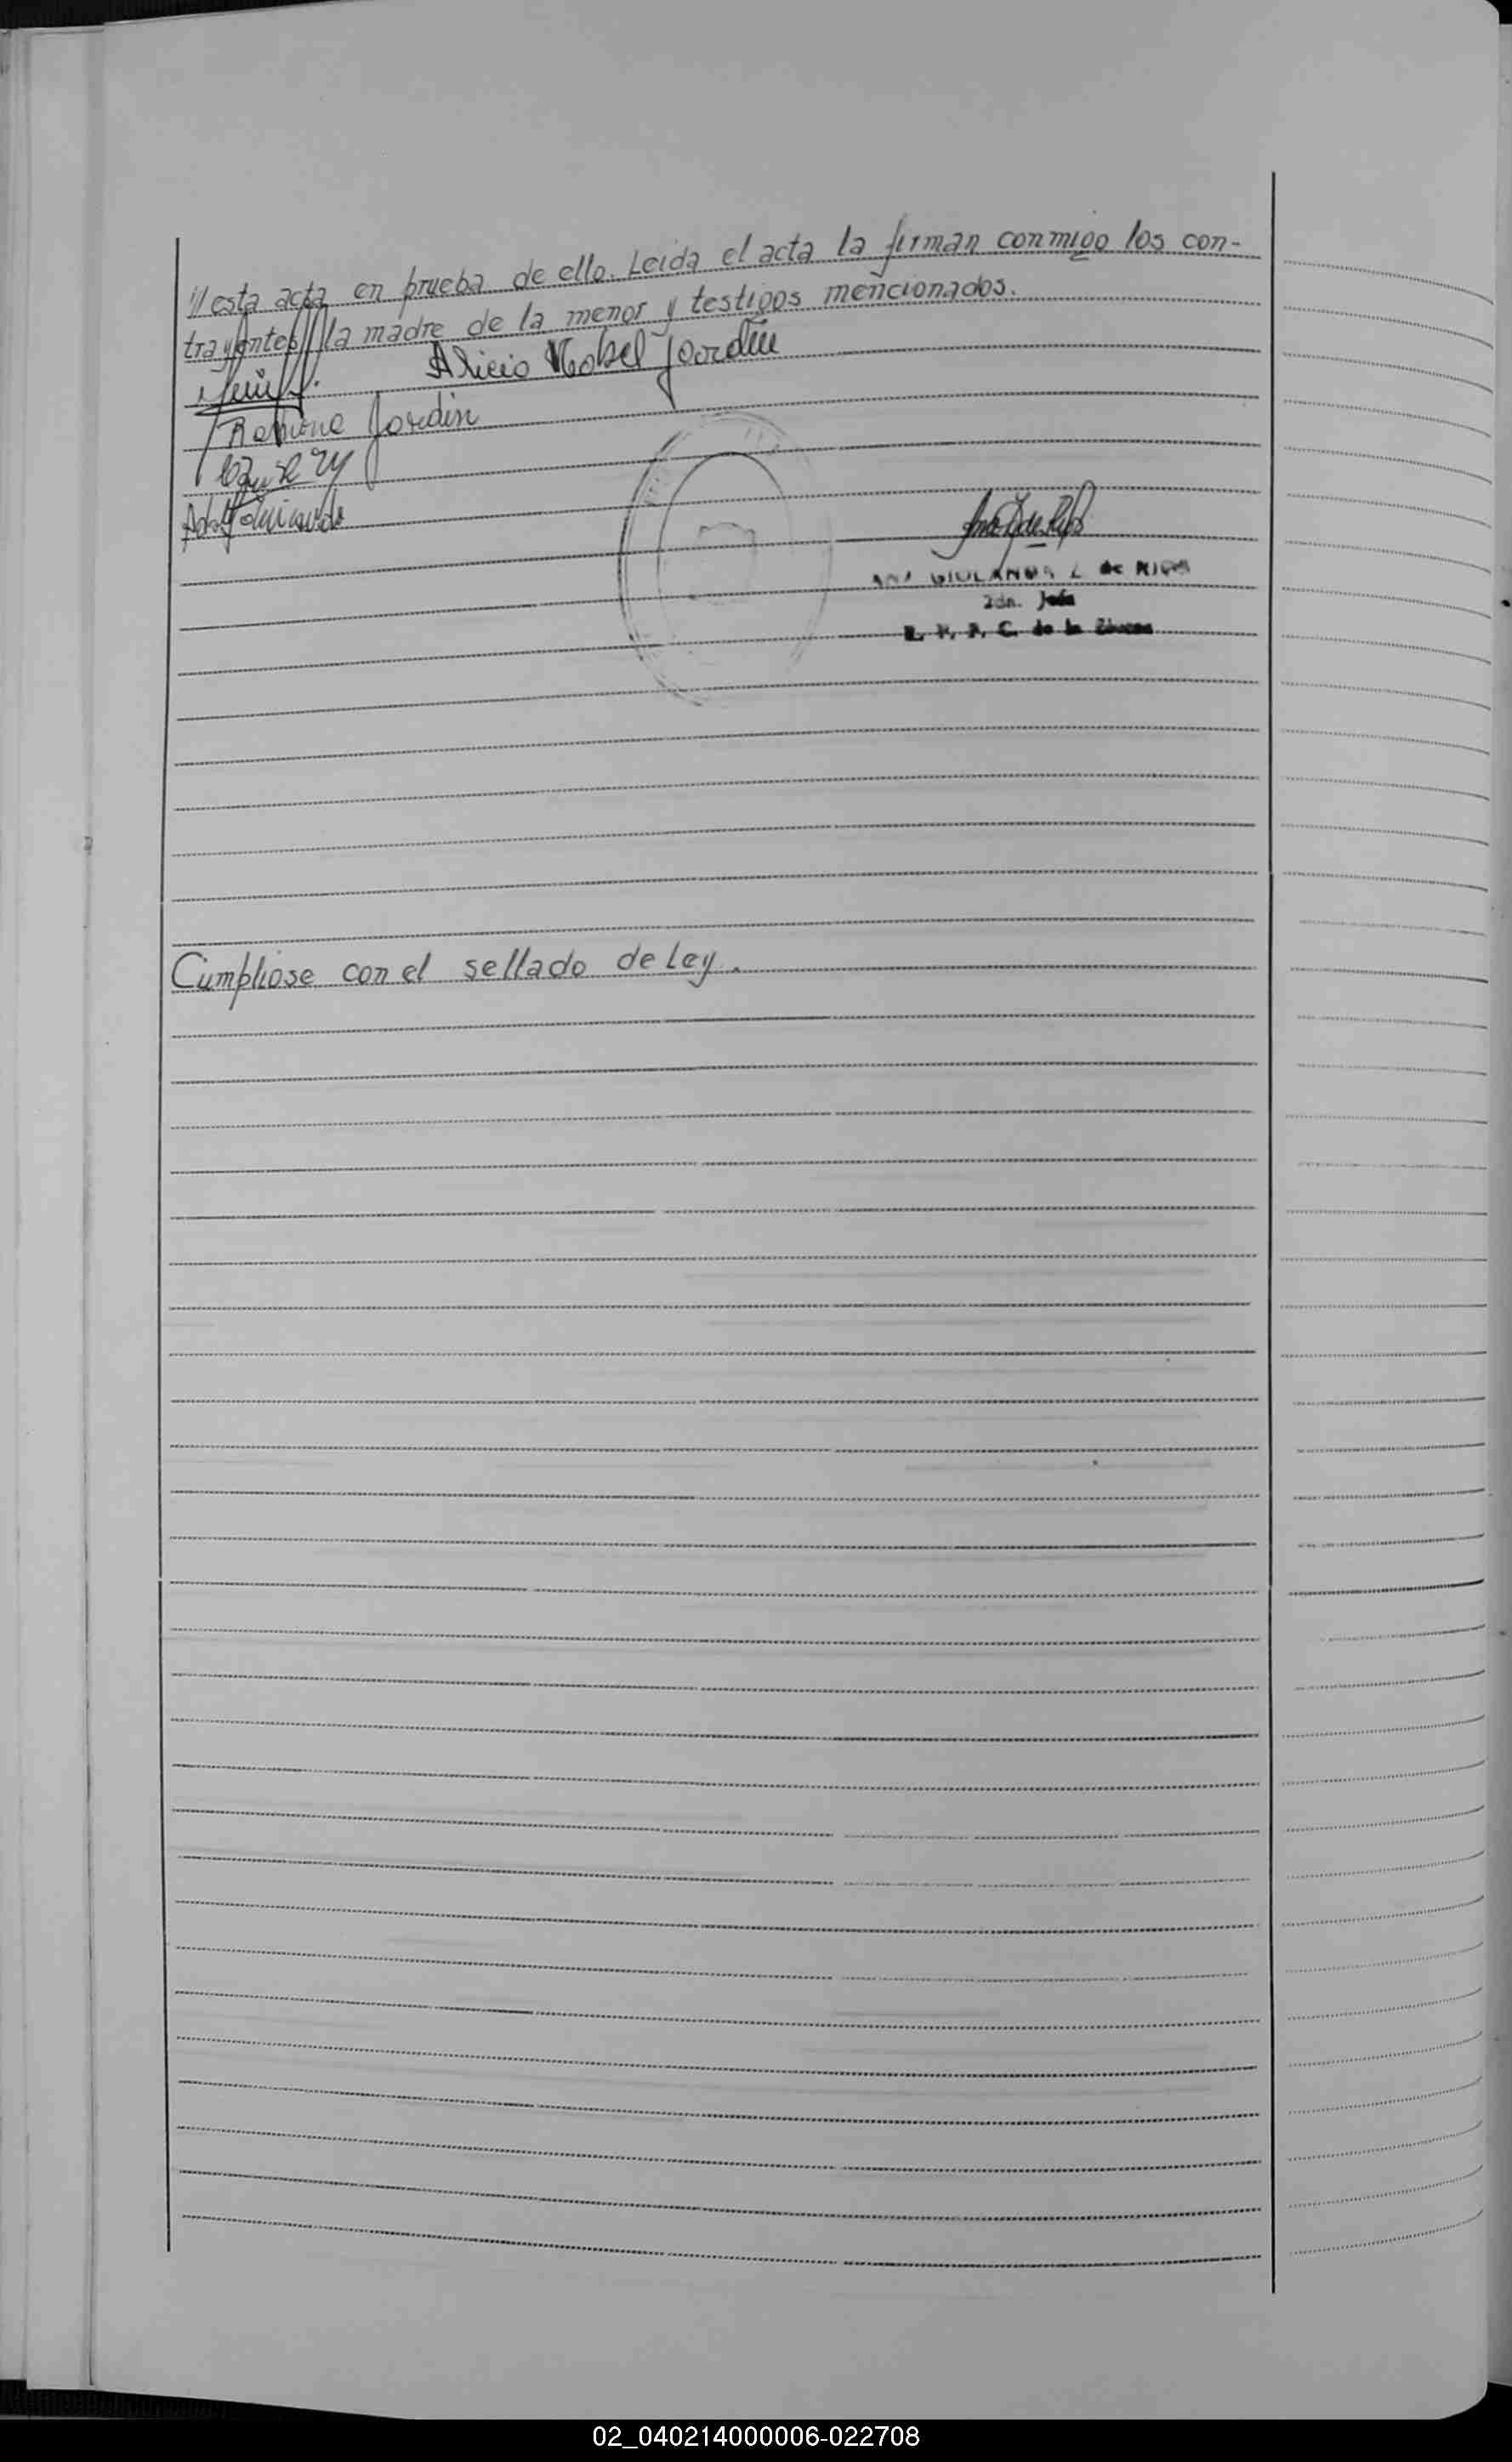 ///esta acta en prueba de ello. Leida el acta la firman conmigo los con-
trayentes, la madre de la menor y testigos mencionados.
Alicia Mabel Jardin
Ramona Jardin
ANA GIOLANDA Z de RIOS
2da. Jefa
R. P. P. C. de la
Cumpliose con el sellado de Ley.
02_040214000006-022708